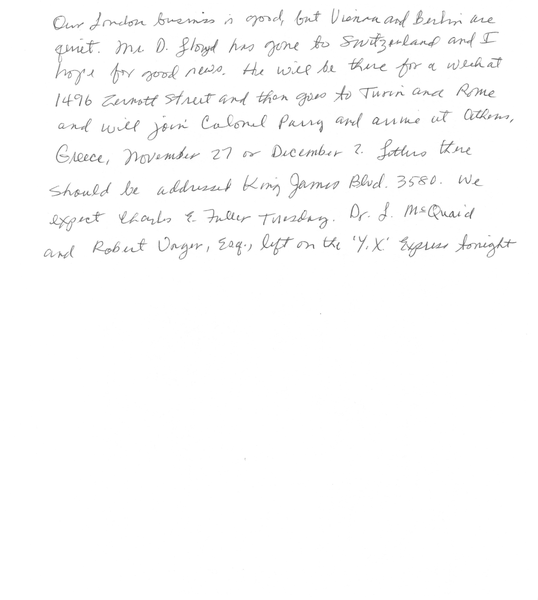 Our London business is good, but Vienna and Berlin are
quiet. Mr. D. Lloyd has gone to Switzerland and I
hope for good news. He will be there for a week at
1496 Zermott Street and then goes to Turin and Rome
and will join Colonel Parry and arrive at Athens,
Greece, November 27 or December 2. Letters there
should be addressed King James Blvd. 3580. We
expect Charles E. Fuller Tuesday. Dr. L. McQuaid
and Robert Unger, Esq., left on the 'Y.X.' Express tonight